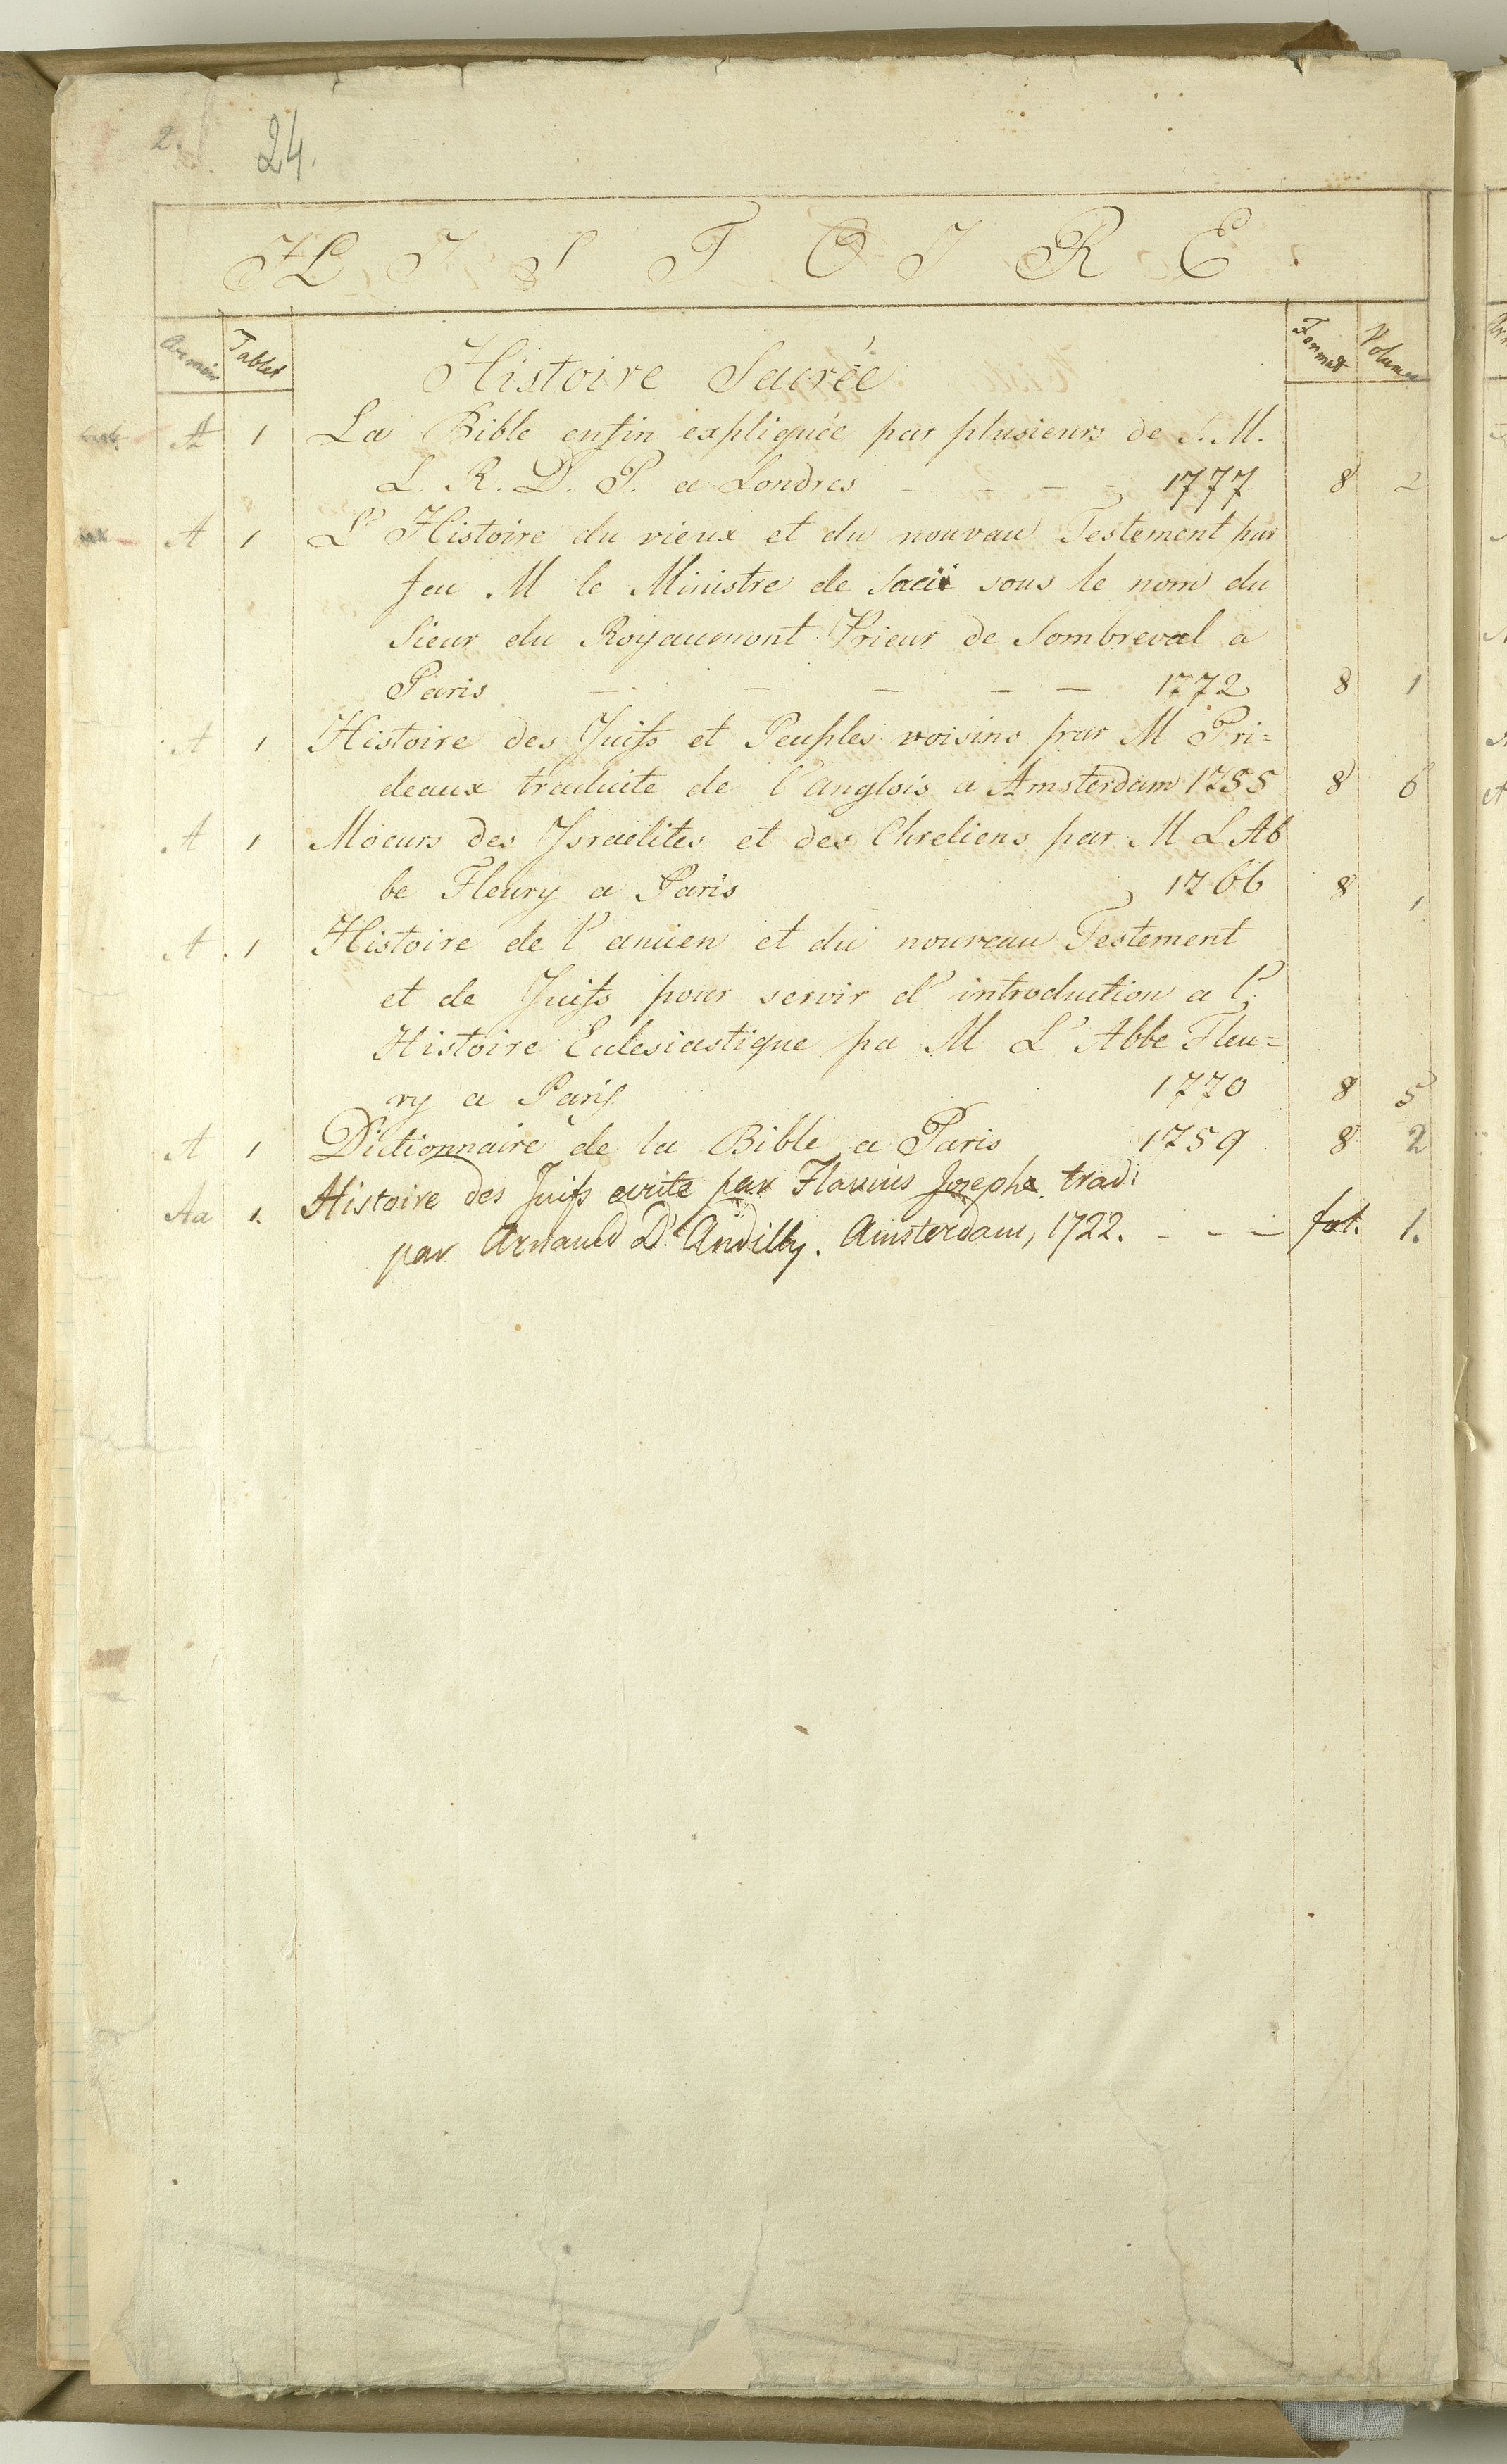 2.
24.
HISTOIRE.
Armoire Tablet Format Volumes
Histoire Sacrée
A 1 La Bible enfin expliquée par plusieurs de S. M.
L. R. D. P. a Londres - - - - 1777 8 2
A 1 L' Histoire du vieux et du nouvau Testement par
feu M le Ministre de Sacii sous le nom du
Sieur du Royaumont Prieur de Sombreval a
Paris - - - - - 1772 8 1
A 1 Histoire des Juifs et Peuples voisins par M Pri=
deaux traduite de l'anglois a Amsterdam 1755 8 6
A 1 Moeurs des Israelites et des Chretiens par M L Ab
be Fleury a Paris 1766 8 1
A 1 Histoire de l' ancien et du nouveau Testement
et de Juifs pour servir d' introduction a l'
Histoire Eclesiastique pa M L' Abbe Fleu=
ry a Paris 1770 8 5
A 1 Dictionnaire de la Bible a Paris 1759 8 2
Aa 1. Histoire des Juifs ecrite par Flavius Josephe. trad:
par Arnauld D'Andilly. Amsterdam, 1722. - - - fol. 1.